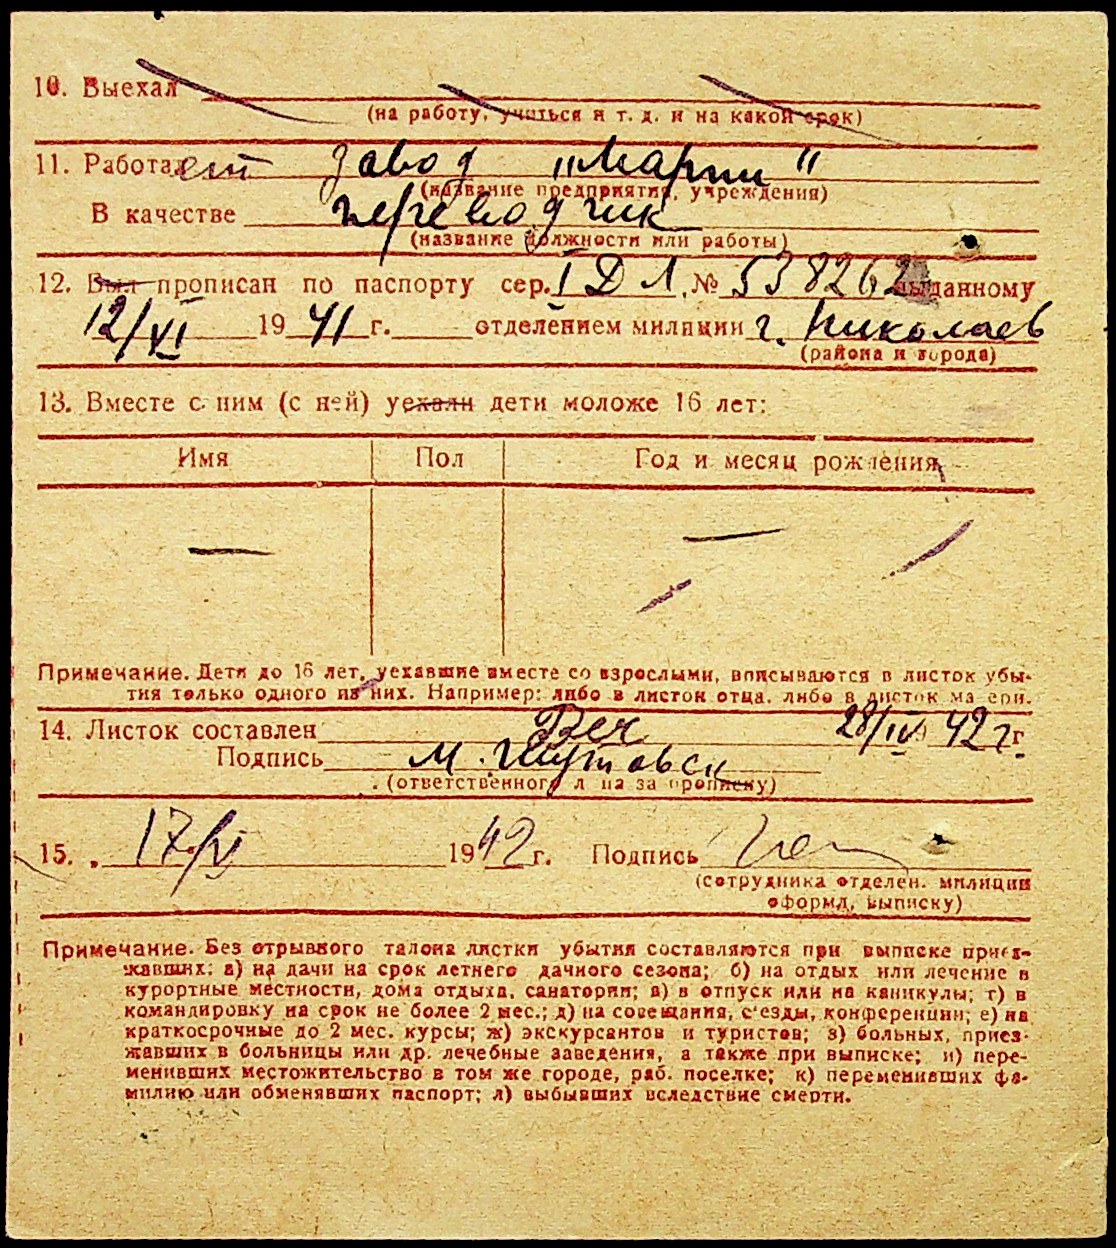 10. Выехал
(на работу, учиться и т. д. и на какой срок)
11. Работает завод „Марти“
(название предприятия, учреждения)
В качестве переводчик
(название должности или работы)
12. Был прописан по паспорту сер. I ДЛ. № 538262 выданному
12/VI 1941 г. отделением милиции г. Николаев
(района и города)
13. Вместе с ним (с ней) уехали дети моложе 16 лет:
Имя Пол Год и месяц рождения
— —
Примечание. Дети до 16 лет, уехавшие вместе со взрослыми, вписываются в листок убы-
тия только одного из них. Например: либо в листок отца, либо в листок матери.
14. Листок составлен 28/IV 42 г
Подпись М.
(ответственного лица за прописку)
15. „ 17/VI 1942 г. Подпись
(сотрудника отделен. милиции
оформл. выписку)
Примечание. Без отрывного талона листки убытия составляются при выписке приез-
жавших: а) на дачи на срок летнего дачного сезона; б) на отдых или лечение в
курортные местности, дома отдыха, санатории; в) в отпуск или на каникулы; г) в
командировку на срок не более 2 мес.; д) на совещания, с'езды, конференции; е) на
краткосрочные до 2 мес. курсы; ж) экскурсантов и туристов; з) больных, приез-
жавших в больницы или др. лечебные заведения, а также при выписке; и) пере-
менивших местожительство в том же городе, раб. поселке; к) переменивших фа-
милию или обменявших паспорт; л) выбывших вследствие смерти.